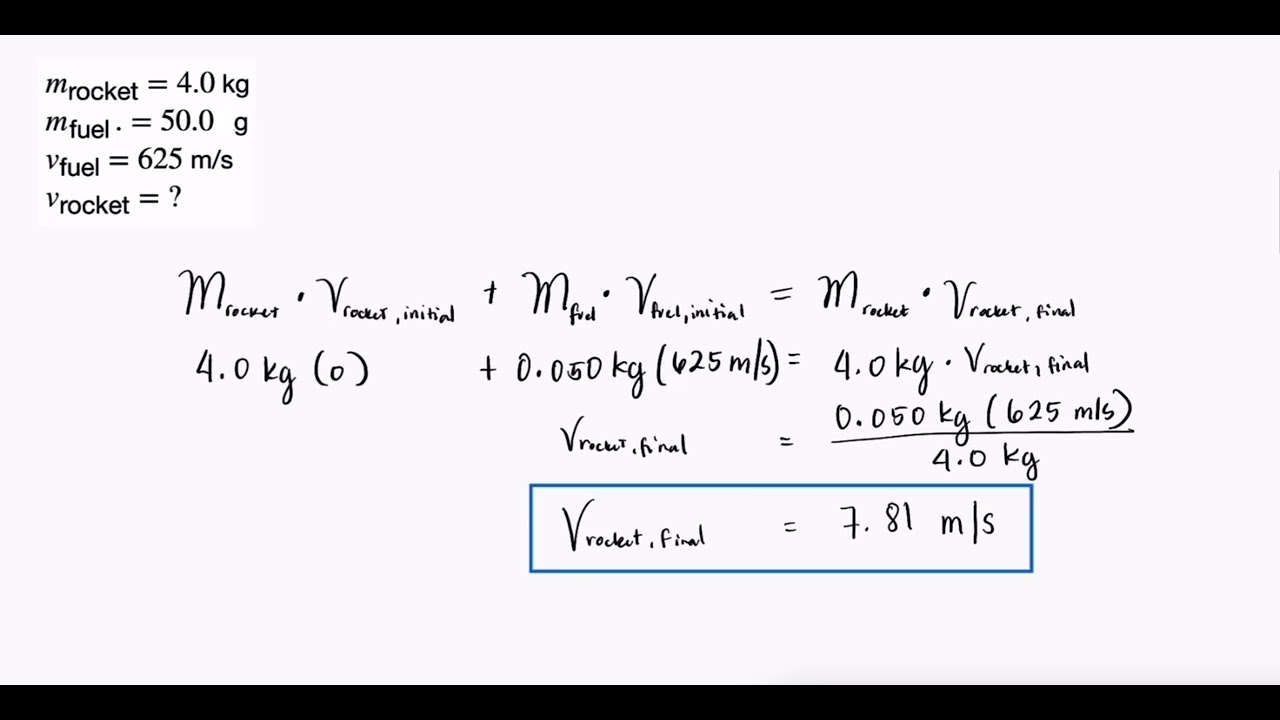 m rocket = 4.0 kg
m fuel . = 50.0 g
v fuel = 625 m/s
v rocket = ?
M rocket · V rocket, initial + M fuel · V fuel, initial = M rocket · V rocket, final
4.0 kg (0) + 0.050 kg (625 m/s) = 4.0 kg · V rocket, final
V rocket, final = 0.050 kg (625 m/s) / 4.0 kg
V rocket, final = 7.81 m/s